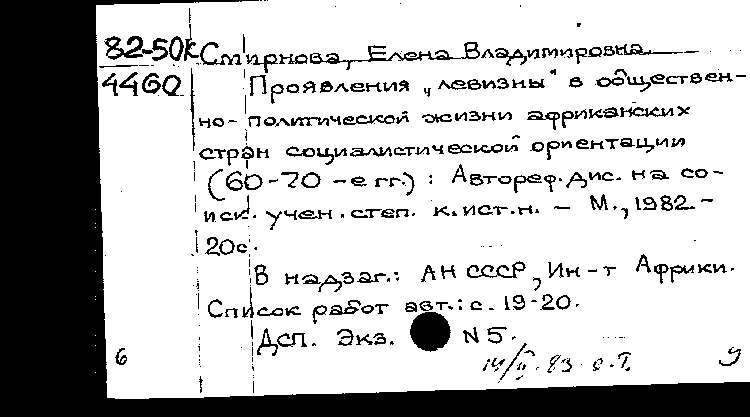 82-50К Смирнова, Елена Владимировна
4460 Проявления „левизны" в обществен-
но-политической жизни африканских
стран социалистической ориентации
(60-70-е гг.) : Автореф. дис. на со-
иск. учен. степ. к.ист.н. – М., 1982. –
20с.
В надзаг.: АН СССР, Ин-т Африки.
Список работ авт.: с. 19-20.
ДСП. Экз. N 5.
6